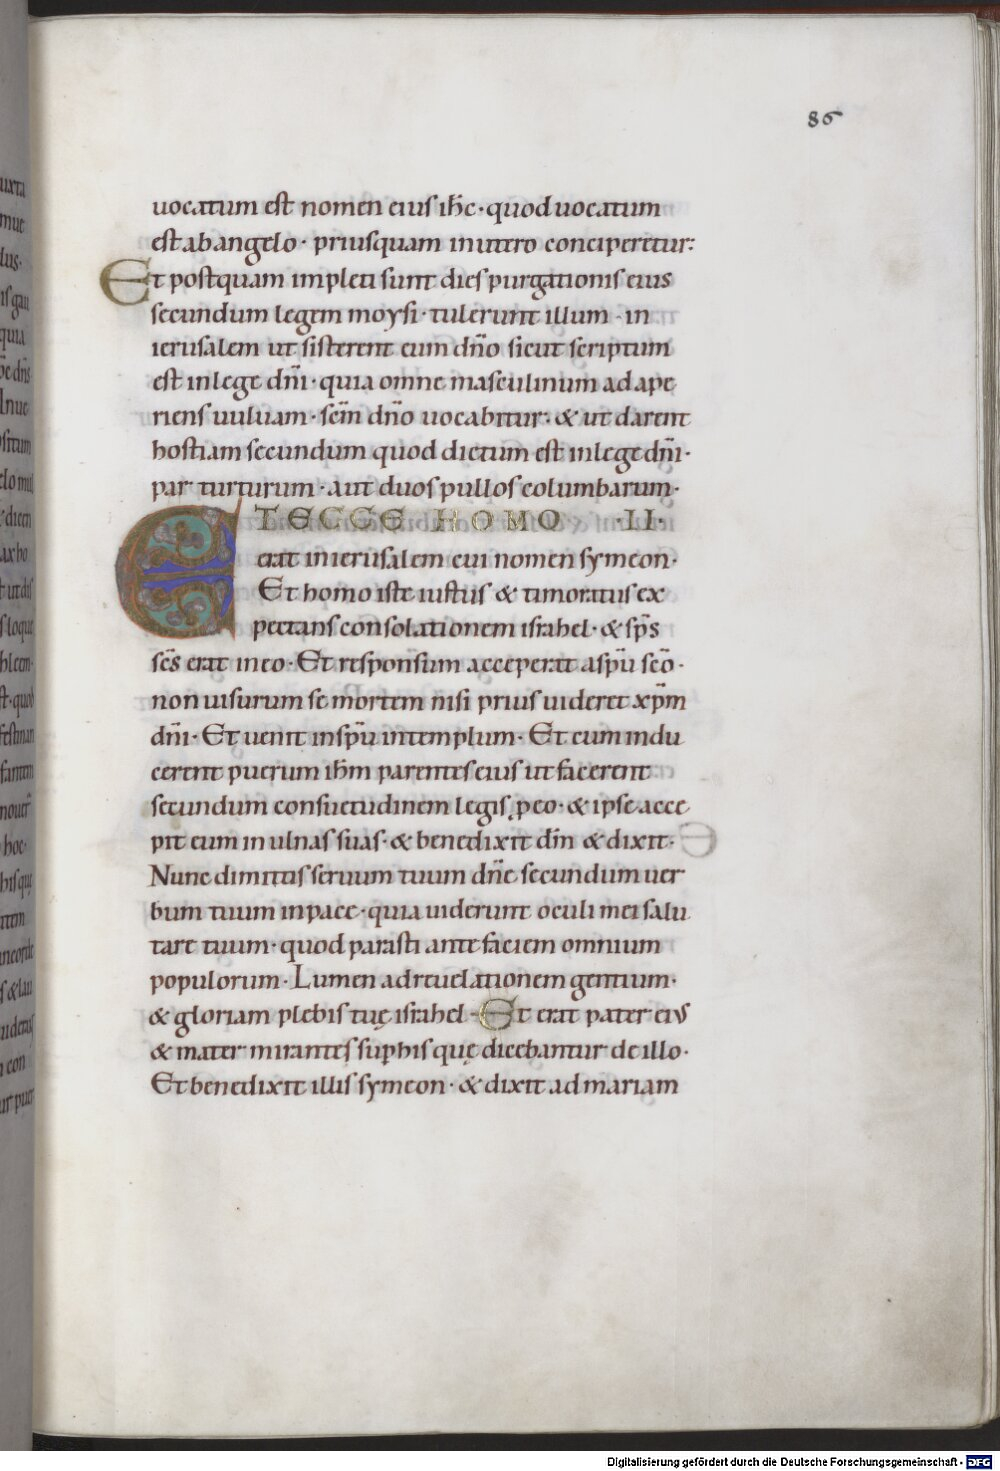 86
uocatum est nomen eius ih̄c · quod uocatum
est ab angelo · priusquam in utero conciperetur :
Et postquam impleti sunt dies purgationis eius
secundum legem moysi · tulerunt illum · in
ierusalem ut sisterent eum dn̄o sicut scriptum
est in lege dn̄i · quia omne masculinum ad ape
riens uuluam · sc̄m dn̄o uocabitur : & ut darent
hostiam secundum quod dictum est in lege dn̄i ·
par turturum · aut duos pullos columbarum ·
ET ECCE HOMO · II ·
erat in ierusalem cui nomen symeon ·
Et homo iste iustus & timoratus ex
pectans consolationem israhel · & sp̄s
sc̄s erat in eo · Et responsum acceperat a sp̄u sc̄o ·
non uisurum se mortem nisi prius uideret xp̄m
dn̄i · Et uenit in sp̄u in templum · Et cum indu
cerent puerum ih̄m parentes eius ut facerent
secundum consuetudinem legis p eo · & ipse acce
pit eum in ulnas suas · & benedixit dm̄ & dixit ·
Nunc dimittis seruum tuum dn̄e secundum uer
bum tuum in pace · quia uiderunt oculi mei salu
tare tuum · quod parasti ante faciem omnium
populorum · Lumen ad reuelationem gentium ·
& gloriam plebis tuę israhel · Et erat pater eius
& mater mirantes sup his quę dicebantur de illo ·
Et benedixit illis symeon · & dixit ad mariam
Digitalisierung gefördert durch die Deutsche Forschungsgemeinschaft - DFG